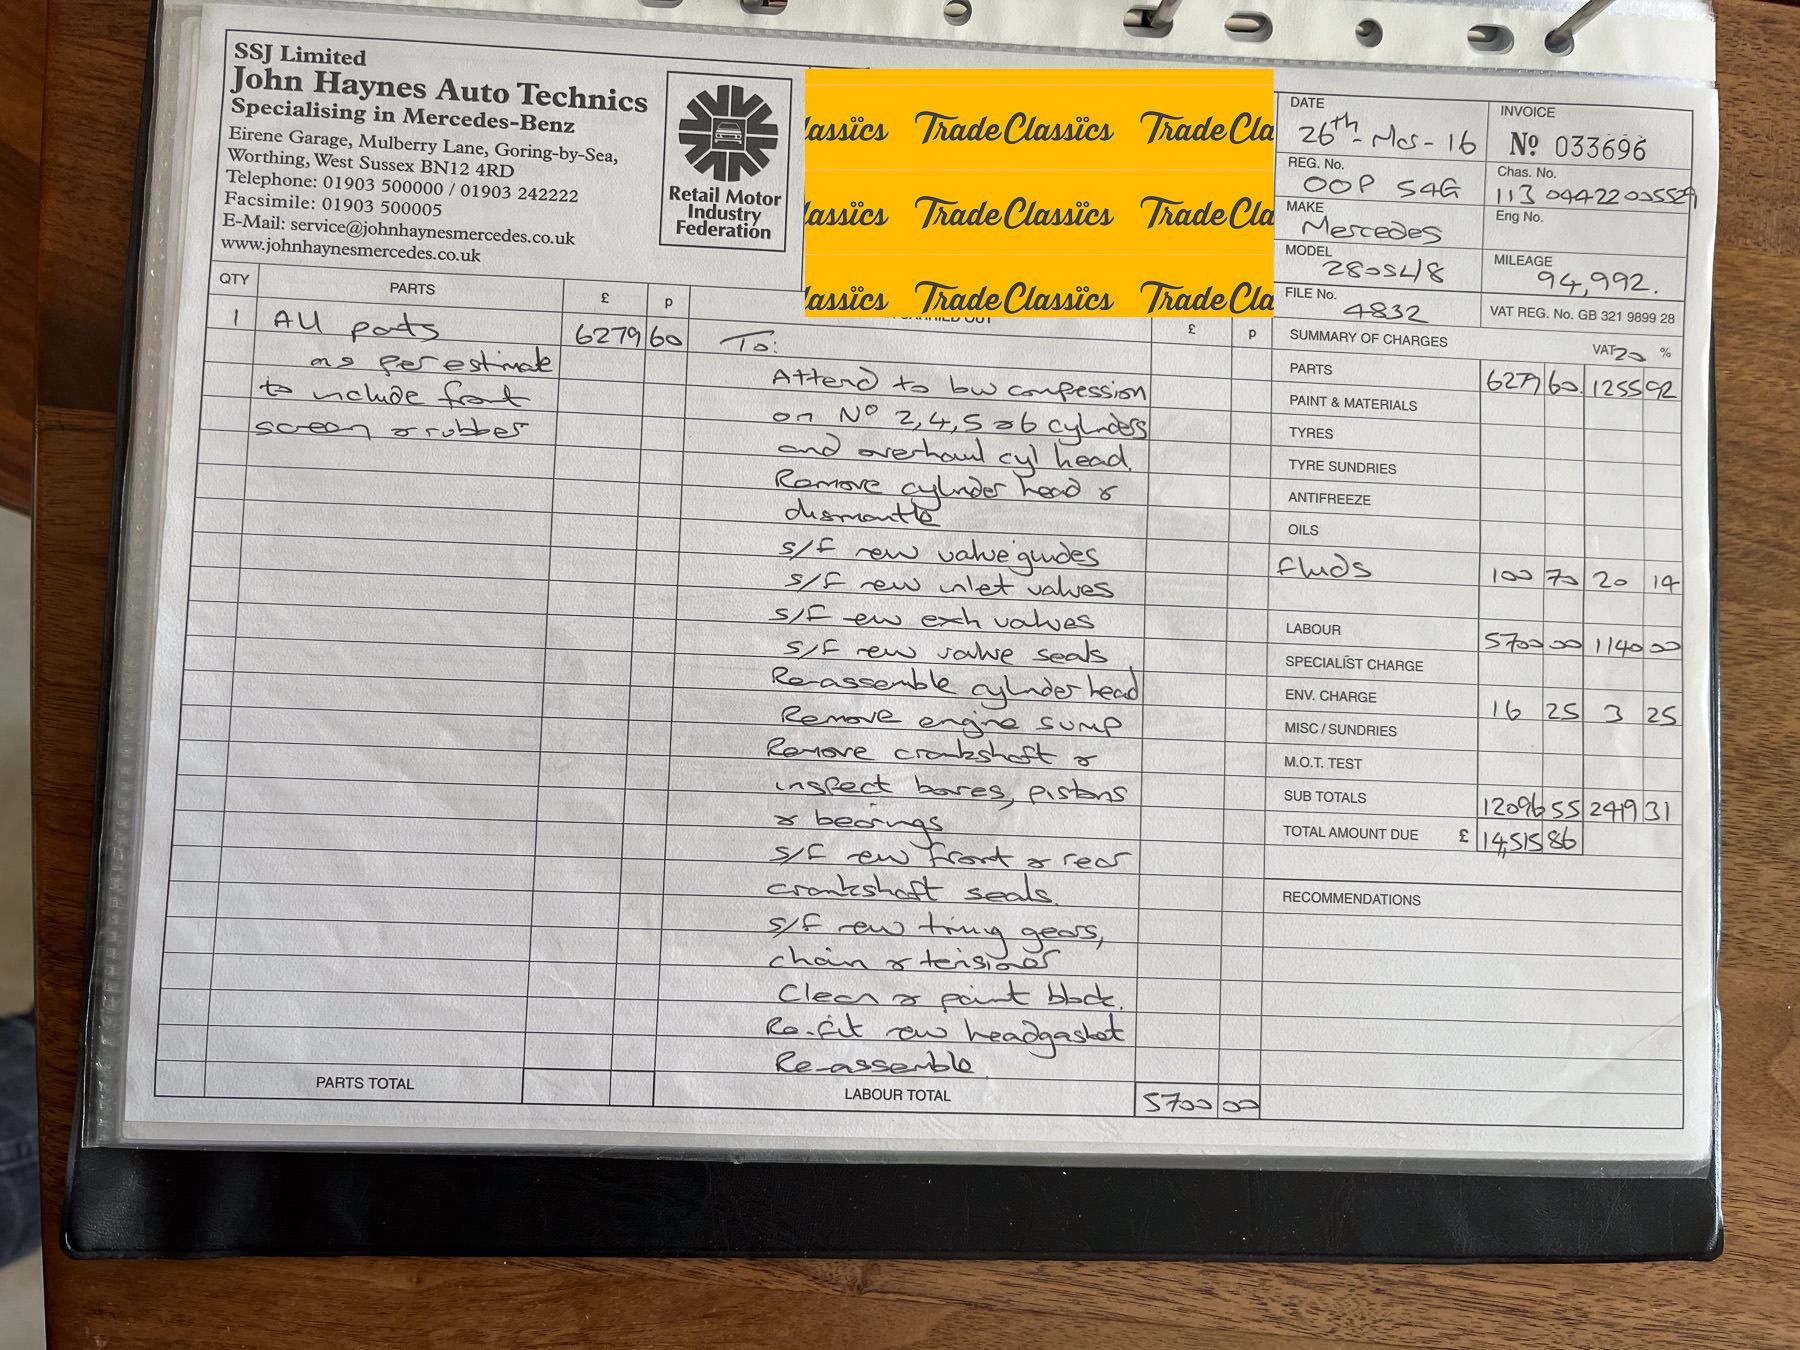 SSJ Limited
John Haynes Auto Technics
Specialising in Mercedes-Benz
Eirene Garage, Mulberry Lane, Goring-by-Sea,
Worthing, West Sussex BN12 4RD
Telephone: 01903 500000 / 01903 242222
Facsimile: 01903 500005
E-Mail: service@johnhaynesmercedes.co.uk
www.johnhaynesmercedes.co.uk
Retail Motor
Industry
Federation
lassïcs Trade Classïcs Trade Cla
lassïcs Trade Classïcs Trade Cla
lassïcs Trade Classïcs Trade Cla
DATE
26th - Mar - 16
INVOICE
No 033696
REG. No.
OOP 54G
Chas. No.
MAKE
Mercedes
Eng No.
MODEL
280SL/8
MILEAGE
94,992.
FILE No.
4832
VAT REG. No. GB 321 9899 28
QTY PARTS £ p
OUT £ p
1 All parts 6279 60
as per estimate
to include front
screen & rubber
To:
Attend to low compession
on No 2,4,5 & 6 cylinders
and overhaul cyl head.
Remove cylinder head &
dismantle
s/f new valve guides
s/f new inlet valves
s/f new exh valves
s/f new valve seals
Re-assemble cylinder head
Remove engine sump
Remove crankshaft &
inspect bores, pistons
& bearings
s/f new front & rear
crankshaft seals.
s/f new timing gears,
chain & tensioner
Clean & paint block.
Re-fit new headgasket
Re-assemble.
PARTS TOTAL
LABOUR TOTAL 5700 00
SUMMARY OF CHARGES VAT 20 %
PARTS 6279 60. 1255 92
PAINT & MATERIALS
TYRES
TYRE SUNDRIES
ANTIFREEZE
OILS
fluids 100 70 20 14
LABOUR 5700 00 1140 00
SPECIALIST CHARGE
ENV. CHARGE 16 25 3 25
MISC / SUNDRIES
M.O.T. TEST
SUB TOTALS 12096 55 2419 31
TOTAL AMOUNT DUE £ 14,515 86
RECOMMENDATIONS